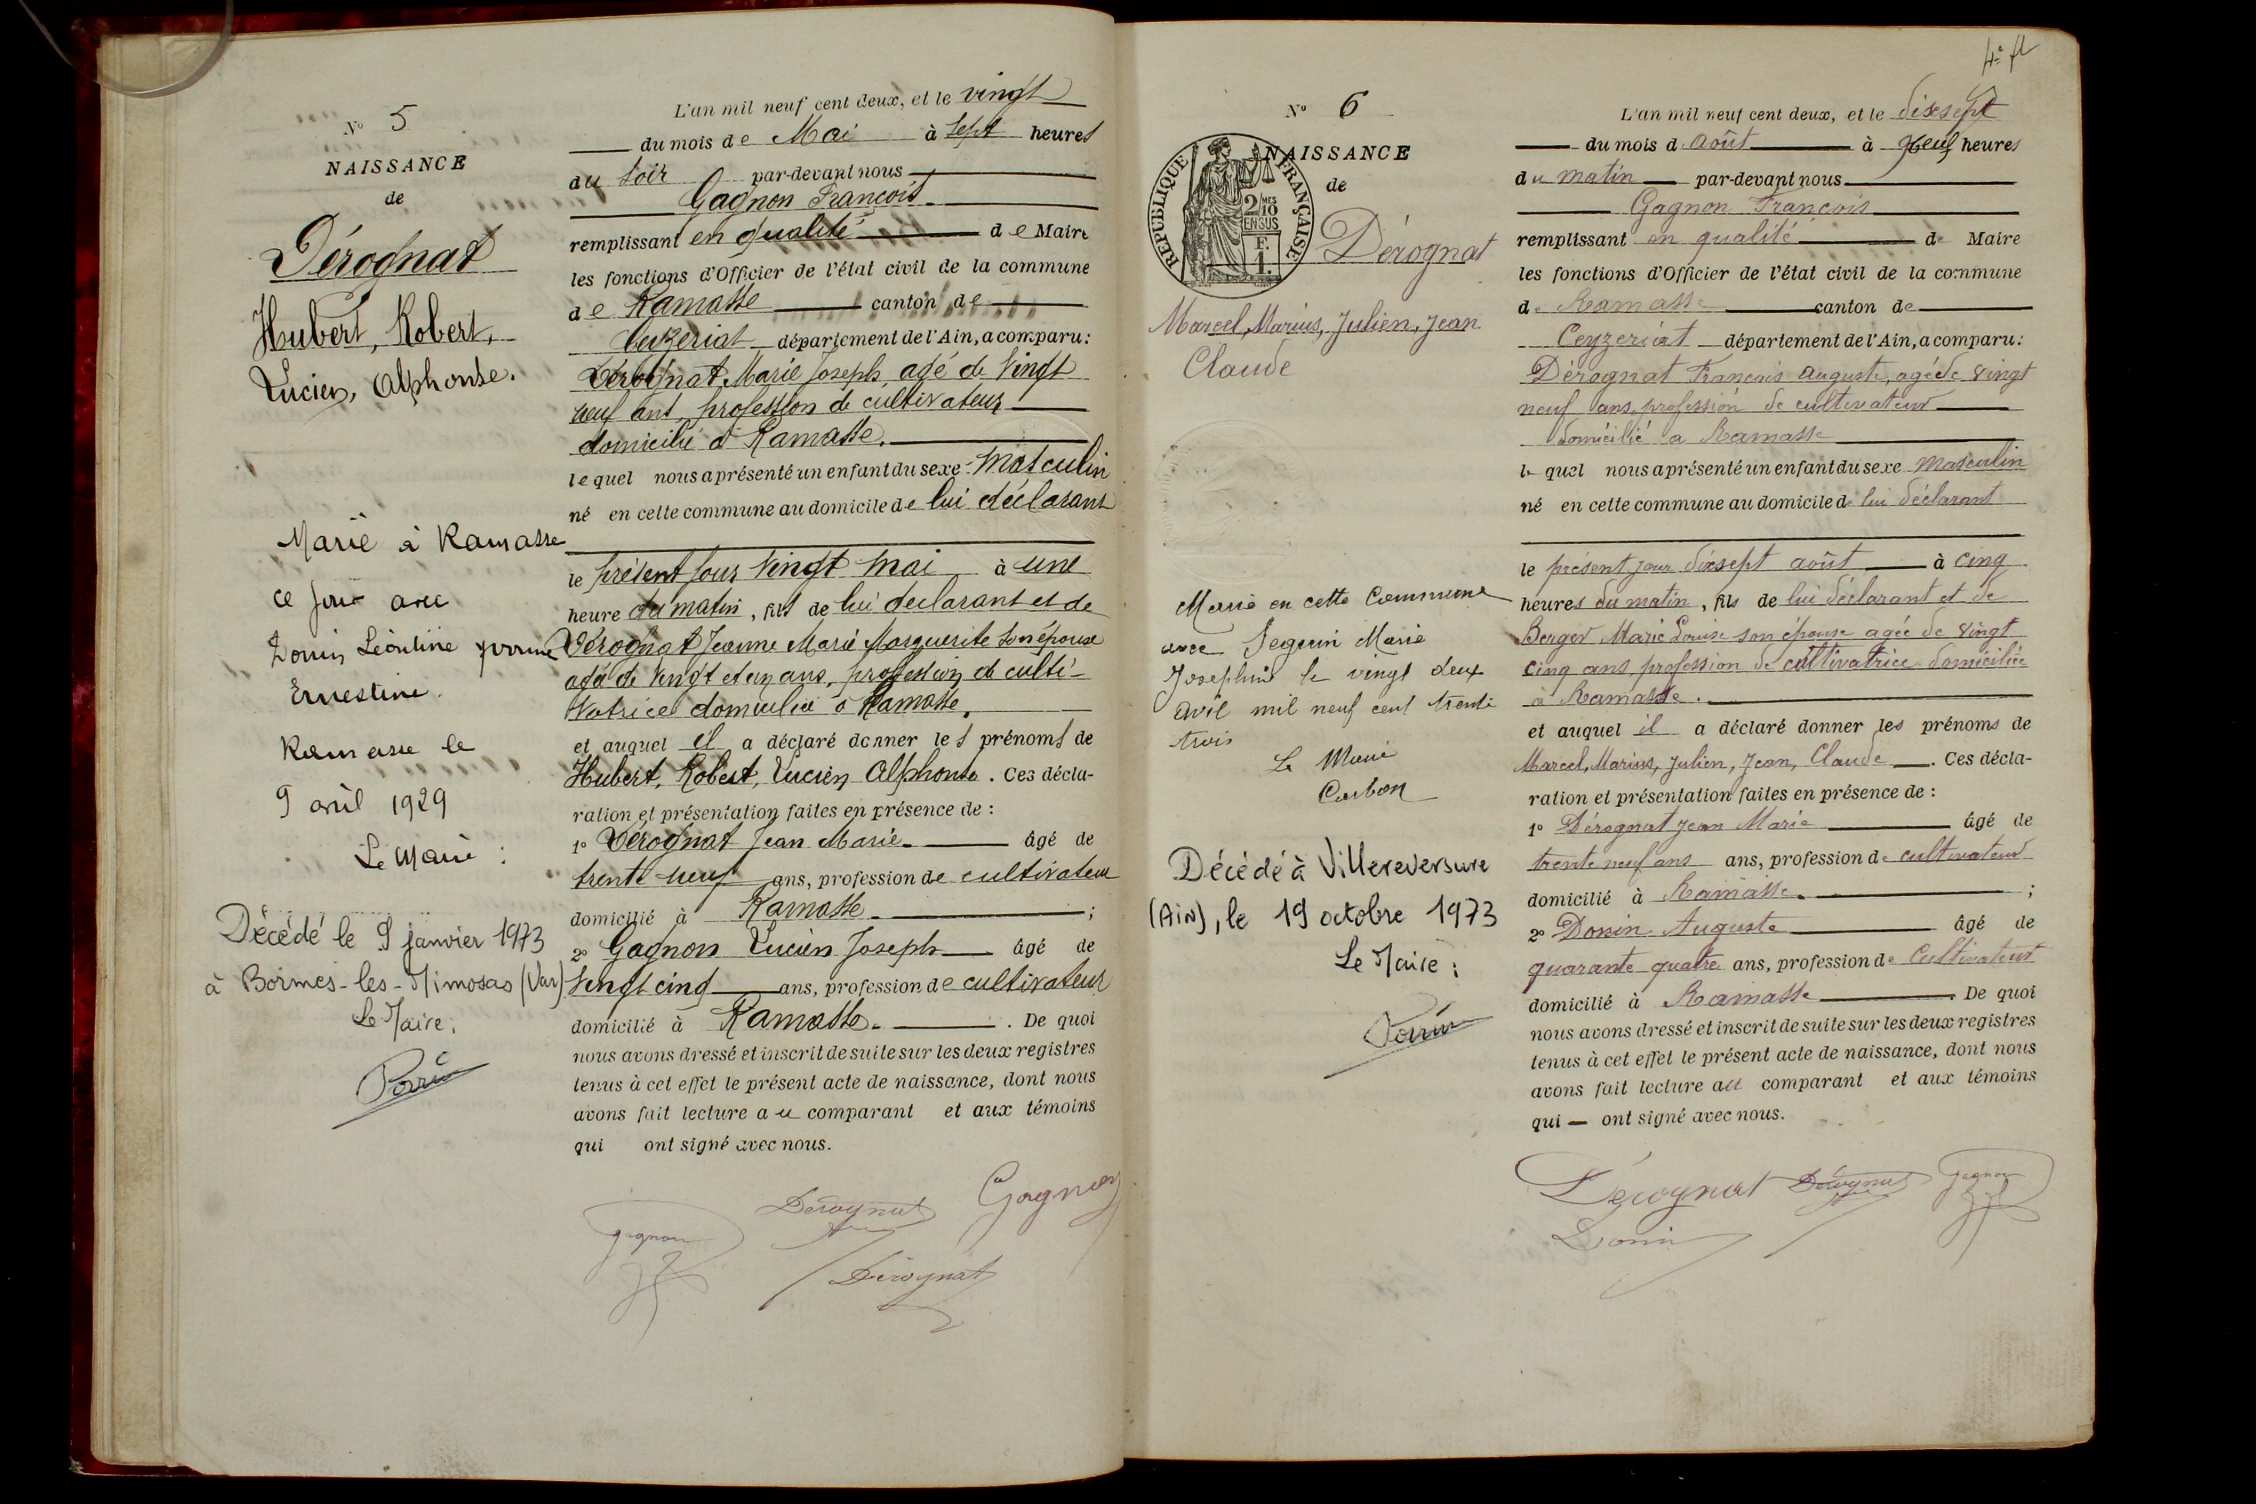 N° 5
NAISSANCE
de
Dérognat
Hubert, Robert,
Lucien, Alphonse.
Marié à Ramasse
ce jour avec
Donin Léontine Yvonne
Ernestine.
Ramasse le
9 avril 1929
Le Maire :
Décédé le 9 janvier 1973
à Bormes-les-Mimosas (Var)
Le Maire :
L'an mil neuf cent deux, et le vingt
du mois de Mai à sept heures
du soir par-devant nous
Gagnon François
remplissant en qualité de Maire
les fonctions d'Officier de l'état civil de la commune
de Ramasse canton de
Ceyzeriat département de l'Ain, a comparu :
Dérognat Marie Joseph agé de vingt
neuf ans, profession de cultivateur
domicilié à Ramasse.
lequel nous a présenté un enfant du sexe masculin
né en cette commune au domicile de lui déclarant
le présent jour vingt mai à une
heure du matin, fils de lui déclarant et de
Dérognat Jeanne Marie Marguerite son épouse
agée de vingt et un ans, profession de culti-
vatrice domiciliée à Ramasse.
et auquel il a déclaré donner les prénoms de
Hubert, Robert, Lucien Alphonse. Ces décla-
ration et présentation faites en présence de :
1° Dérognat Jean Marie âgé de
trente neuf ans, profession de cultivateur
domicilié à Ramasse ;
2° Gagnon Lucien Joseph âgé de
vingt cinq ans, profession de cultivateur
domicilié à Ramasse. De quoi
nous avons dressé et inscrit de suite sur les deux registres
tenus à cet effet le présent acte de naissance, dont nous
avons fait lecture au comparant et aux témoins
qui ont signé avec nous.
Dérognat Gagnon
Gagnon
Dérognat
4e fl
N° 6
NAISSANCE
de
REPUBLIQUE FRANÇAISE
2/10 MES
EN SUS
F.
1.
Dérognat
Marcel, Marius, Julien, Jean
Claude
Marié en cette Commune
avec Seguin Marie
Josephine le vingt deux
avril mil neuf cent trente
trois
Le Maire
Carbon
Décédé à Villereversure
(Ain), le 19 octobre 1973
Le Maire :
L'an mil neuf cent deux, et le dixsept
du mois d'août à neuf heures
du matin par-devant nous
Gagnon François
remplissant en qualité de Maire
les fonctions d'Officier de l'état civil de la commune
de Ramasse canton de
Ceyzeriat département de l'Ain, a comparu :
Dérognat François Auguste, agé de vingt
neuf ans, profession de cultivateur
domicilié à Ramasse
lequel nous a présenté un enfant du sexe masculin
né en cette commune au domicile de lui déclarant
le présent jour dixsept août à cinq
heures du matin, fils de lui déclarant et de
Berger Marie Louise son épouse agée de vingt
cinq ans profession de cultivatrice domiciliée
à Ramasse.
et auquel il a déclaré donner les prénoms de
Marcel, Marius, Julien, Jean, Claude. Ces décla-
ration et présentation faites en présence de :
1° Dérognat Jean Marie âgé de
trente neuf ans ans, profession de cultivateur
domicilié à Ramasse ;
2° Donin Auguste âgé de
quarante quatre ans, profession de Cultivateur
domicilié à Ramasse. De quoi
nous avons dressé et inscrit de suite sur les deux registres
tenus à cet effet le présent acte de naissance, dont nous
avons fait lecture au comparant et aux témoins
qui — ont signé avec nous.
Dérognat Dérognat Gagnon
Donin